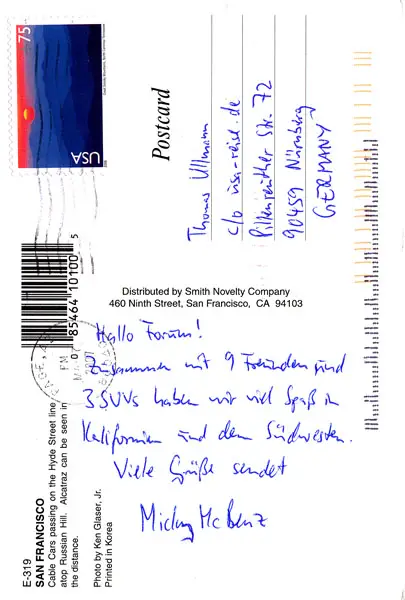 E-319
SAN FRANCISCO
Cable Cars passing on the Hyde Street line
atop Russian Hill. Alcatraz can be seen in
the distance.
Photo by Ken Glaser, Jr.
Printed in Korea
0 85464 10100 5
Distributed by Smith Novelty Company
460 Ninth Street, San Francisco, CA 94103
Hallo Forum!
Zusammen mit 9 Freunden und
3 SUVs haben wir viel Spaß in
Kalifornien und dem Südwesten.
Viele Grüße sendet
Micky McBenz
Postcard
USA
75
PM
Thomas Ullmann
c/o usa-reise.de
Pillenreuther Str. 72
90459 Nürnberg
GERMANY